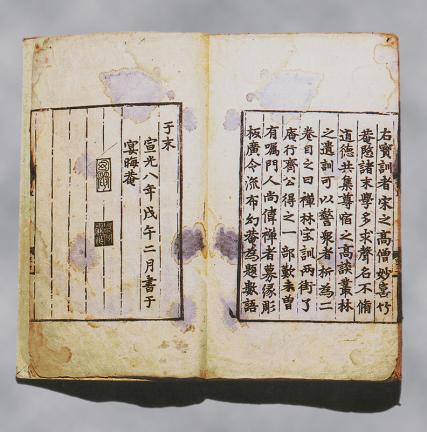 右寶訓者宋之高僧妙喜竹
菴愍諸末學多求聲名不脩
道德共集尊宿之高談叢林
之遺訓可以警衆者析為二
卷目之曰禪林宝訓两街了
菴行齊公得之一部歎未曽
有嘱門人尚偉禪者募縁彫
板廣令流布幻菴為題數語
于末
宣光八年戊午二月書于
宴晦菴